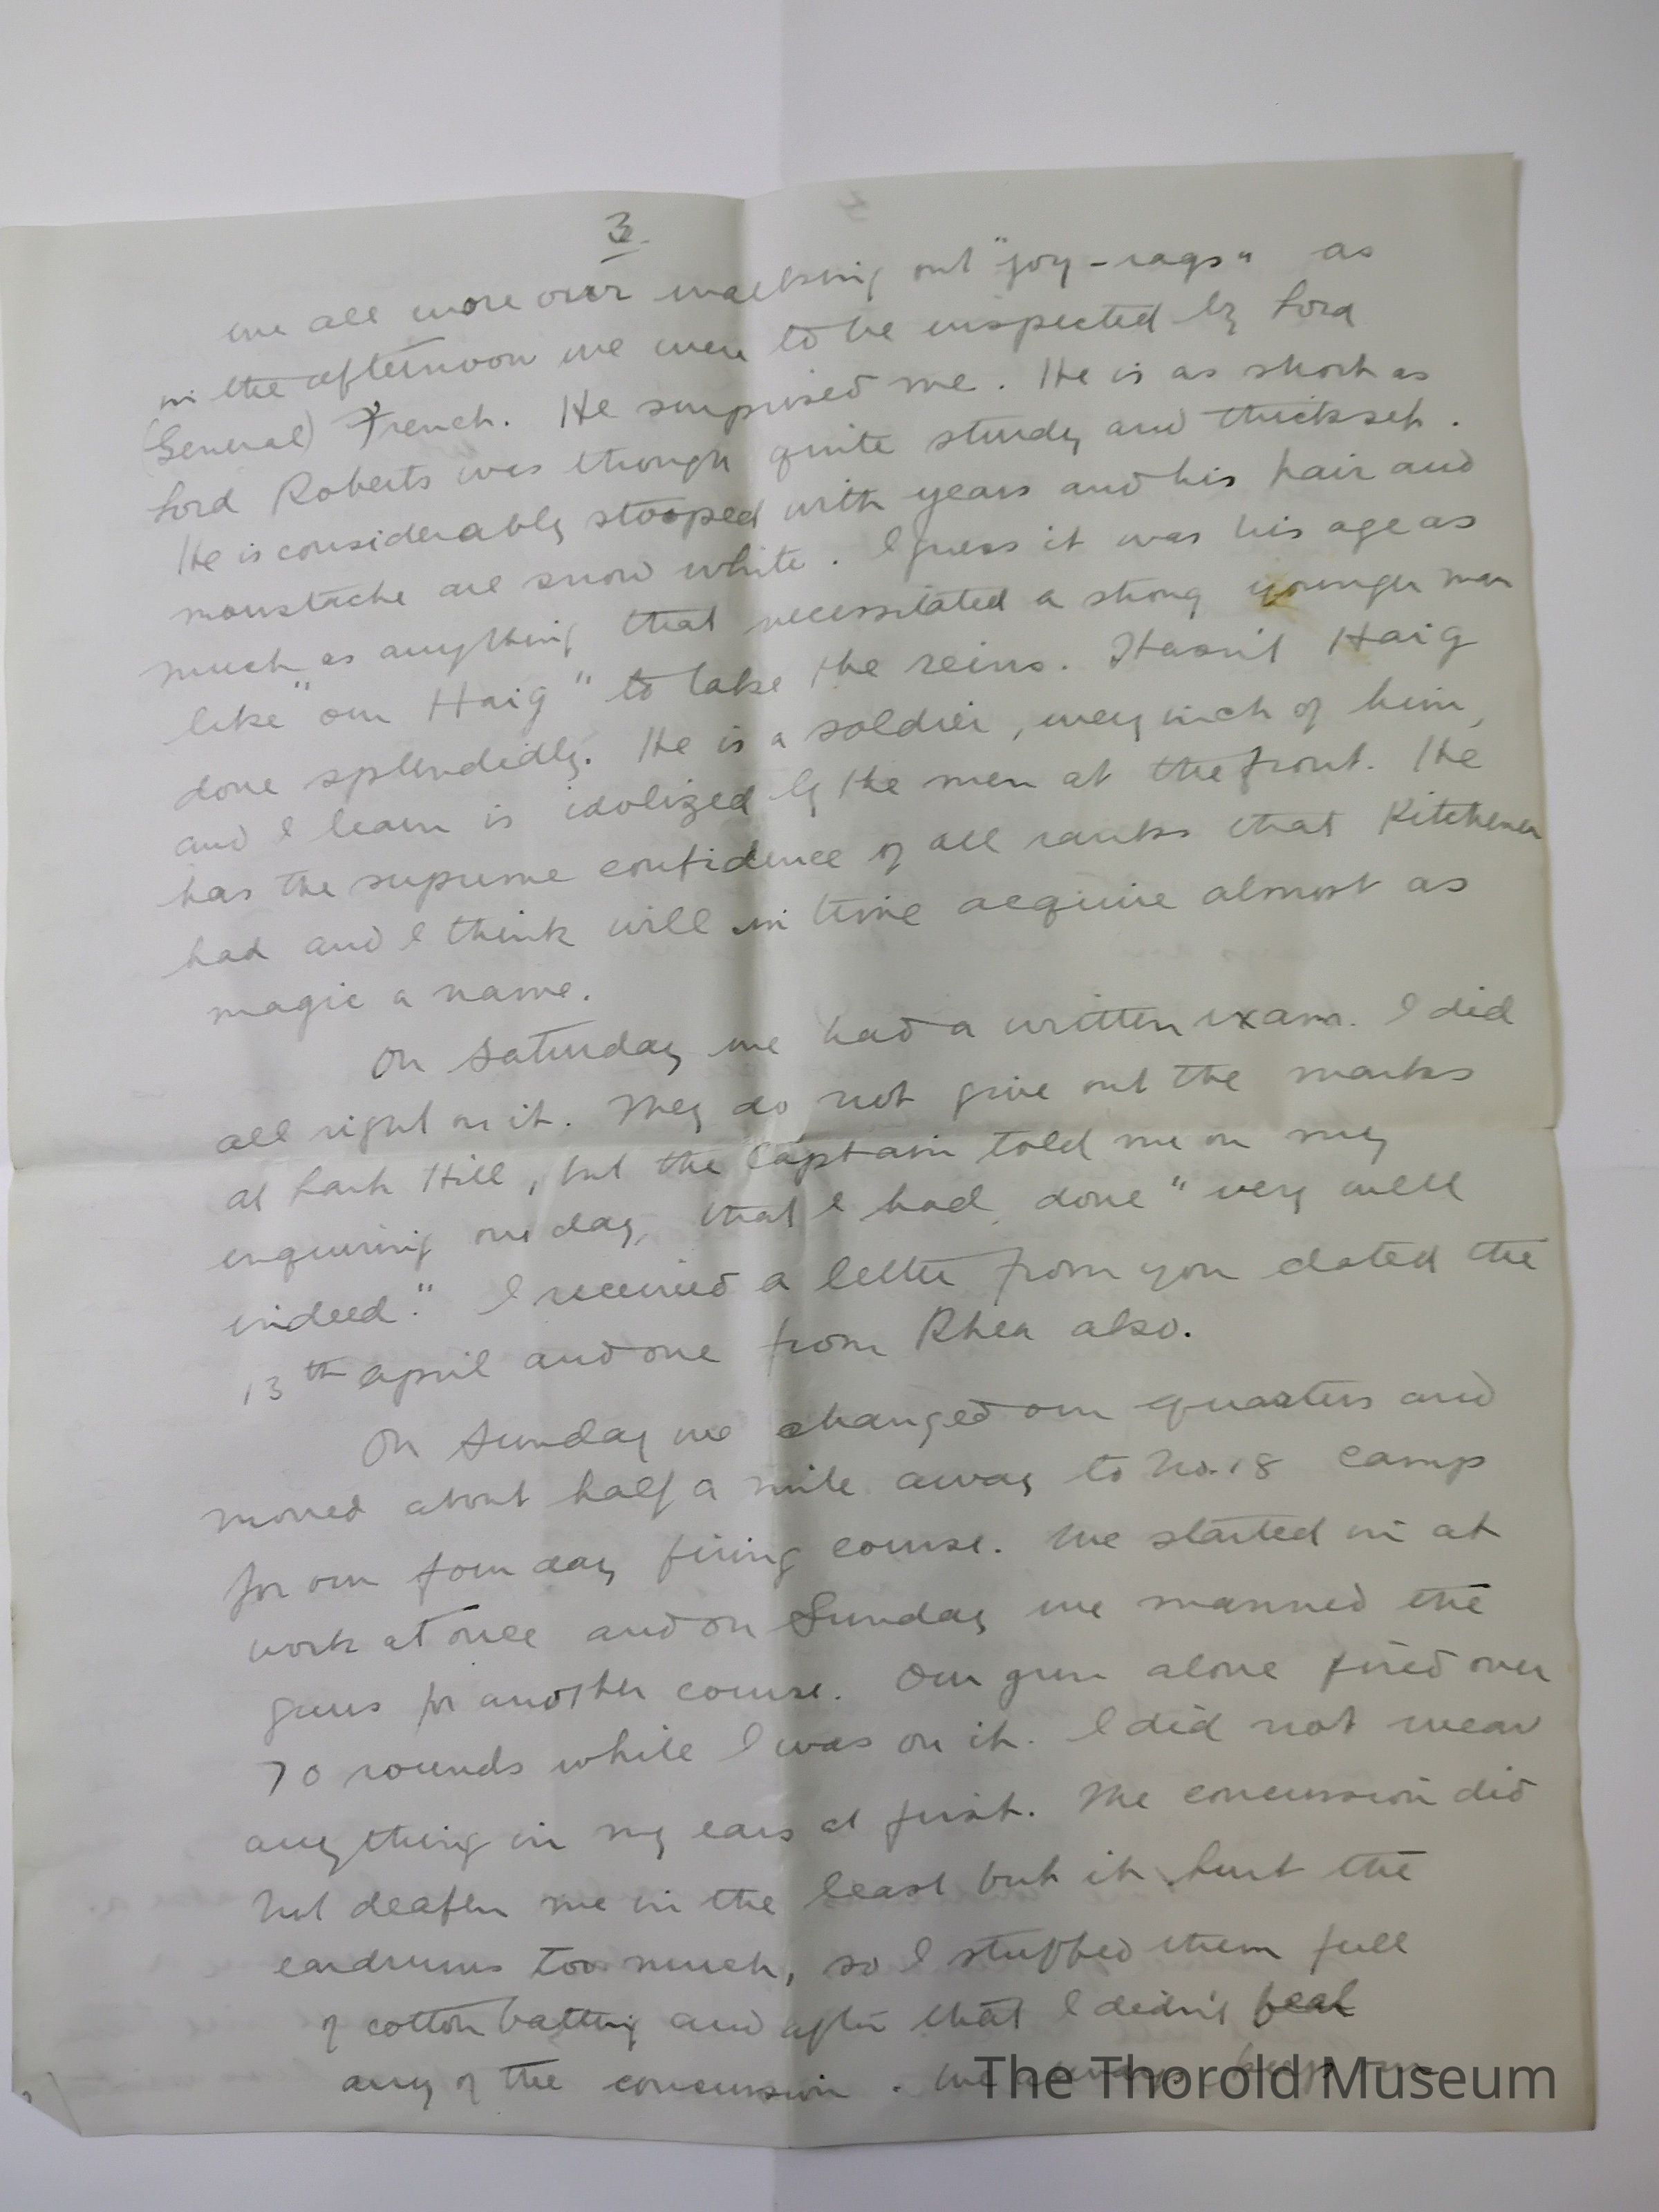 3.
we all wore our walking out "joy-rags" as
in the afternoon we were to be inspected by Lord
(General) French. He surprised me. He is as short as
Lord Roberts was though quite sturdy and thickset.
He is considerably stooped with years and his hair and
moustache are snow white. I guess it was his age as
much as anything that necessitated a strong younger man
like "our Haig" to take the reins. Hasn't Haig
done splendidly. He is a soldier, every inch of him,
and I learn is idolized by the men at the front. He
has the supreme confidence of all ranks that Kitchener
had and I think will in time acquire almost as
magic a name.
On Saturday we had a written exam. I did
all right on it. They do not give out the marks
at Lark Hill, but the Captain told me on my
enquiring one day, that I had done "very well
indeed." I received a letter from you dated the
13th April and one from Rhea also.
On Sunday we changed our quarters and
moved about half a mile away to No. 18 Camp
for our four day firing course. We started in at
work at once and on Sunday we manned the
guns for another course. Our gun alone fired over
70 rounds while I was on it. I did not wear
anything in my ears at first. The concussion did
not deafen me in the least but it hurt the
eardrums too much, so I stuffed them full
of cotton batting and after that I didn't feel
any of the concussion. We always keep our
The Thorold Museum